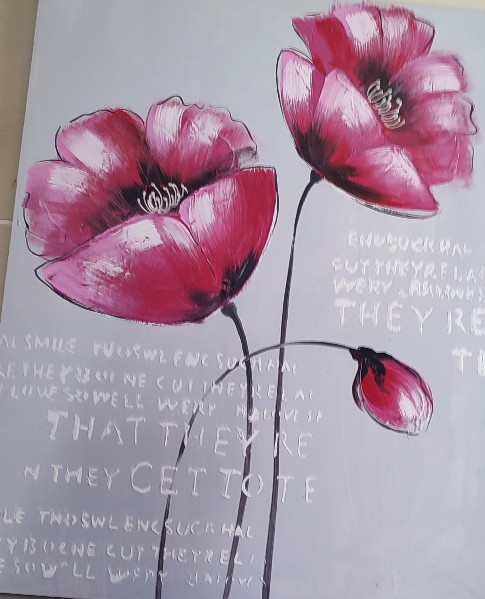 ENUSUCKHAL
CUTTHEYRELAC
WERY
THEY RE
AL SMILE TWOSWLENCSUCHHAL
RE THEY BORNE CUTTHEYRELAI
LOVESOWELL WERY
THAT THEY RE
N THEY CETTOTE
LE TWOSWLENCSUCKHAL
YBORNE CUTTHEYRELI
ESOWELL WERY